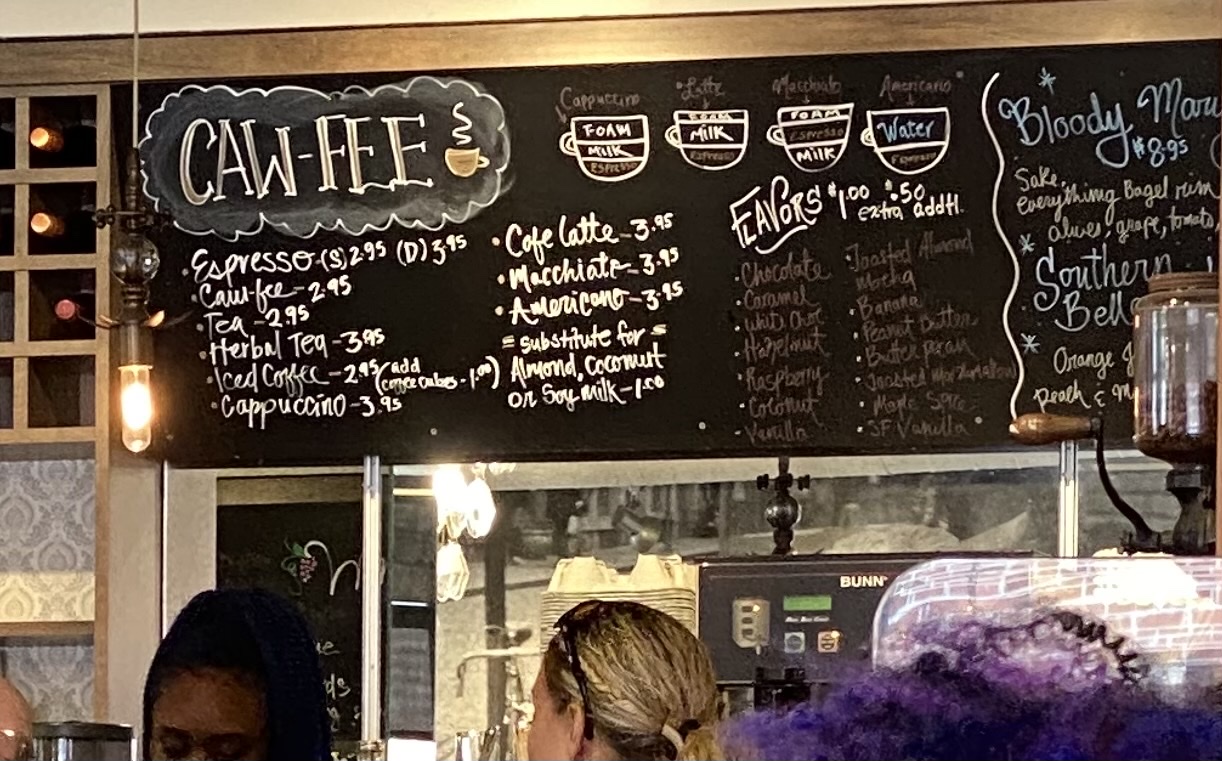 CAW-FEE
Espresso-(S)2.95 (D)3.95
Caw-fee-2.95
Tea-2.95
Herbal Tea-3.95
Iced Coffee-2.95(add coffee cubes-1.00)
Cappuccino-3.95
Cafe latte-3.95
Macchiato-3.95
Americano-3.95
= substitute for =
Almond, Coconut
or Soy milk-1.00
Cappuccino
FOAM
MILK
Espresso
Latte
FOAM
MILK
Espresso
Macchiato
FOAM
Espresso
MILK
Americano
Water
Espresso
FLAVORS $1.00 $.50
extra addtl.
Chocolate
Caramel
White Choc
Hazelnut
Raspberry
Coconut
Vanilla
Toasted Almond
Mocha
Banana
Peanut Butter
Butter Pecan
Toasted Marshmallow
Maple Spice
SF Vanilla
Bloody Mary
$8.95
Sake,
Everything Bagel rim
olives, grape, tomato,
Southern
Belle
Orange
peach &
BUNN